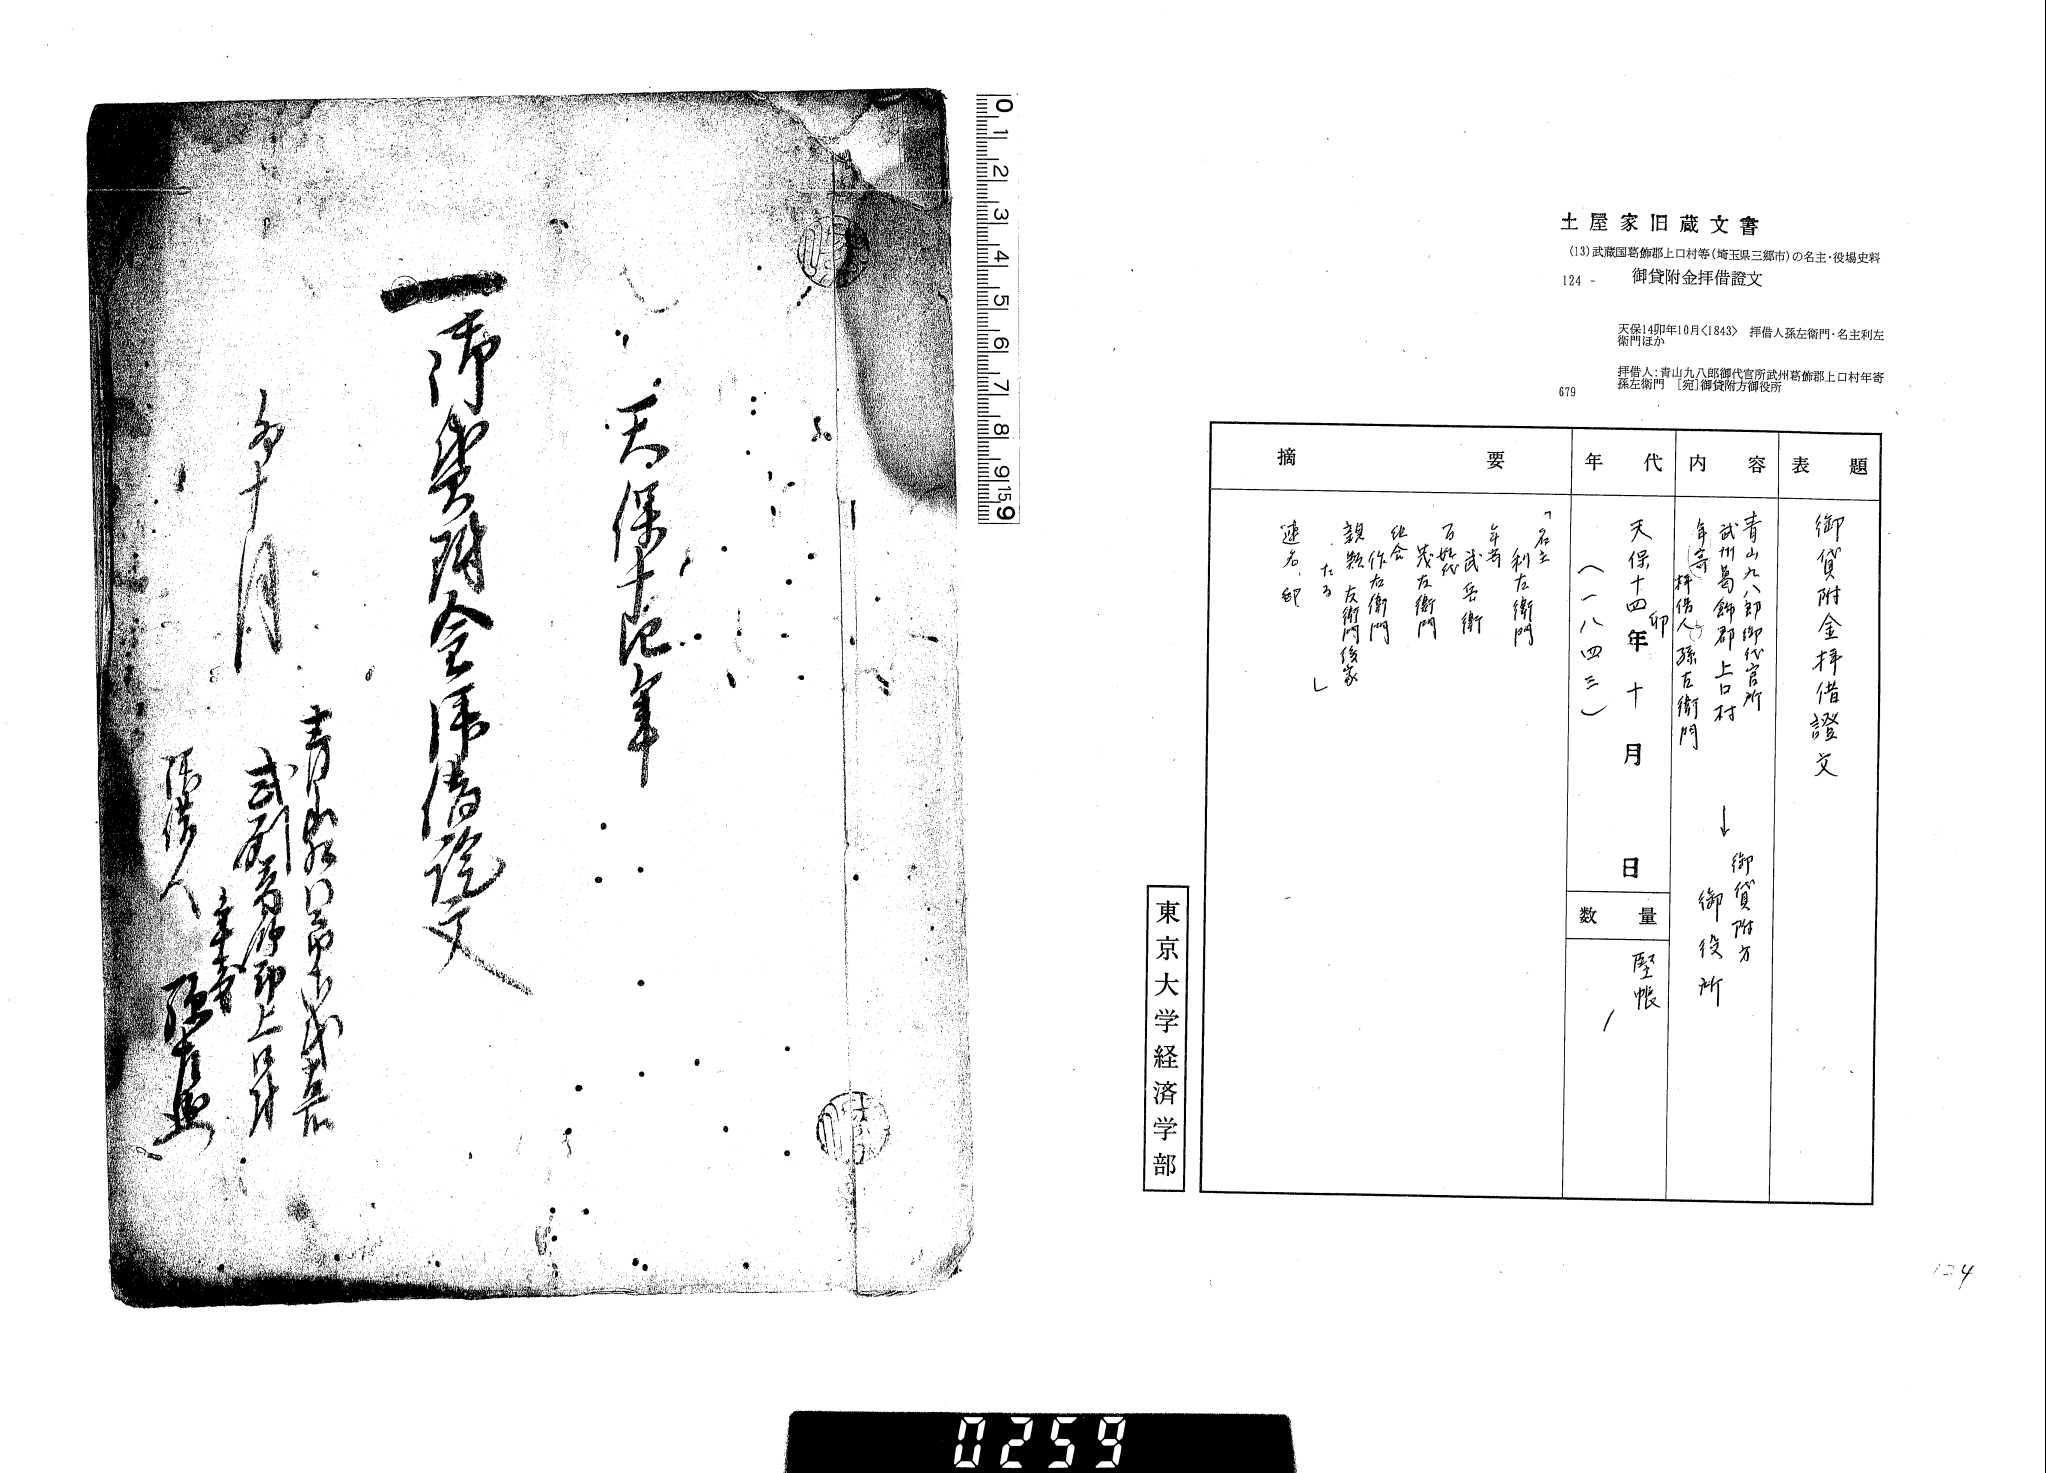 土屋家旧蔵文書
(13)武蔵国葛飾郡上口村等(埼玉県三郷市)の名主・役場史料
124 - 御貸附金拝借證文
天保14卯年10月<1843> 拝借人孫左衛門・名主利左
衛門ほか
拝借人:青山九八郎御代官所武州葛飾郡上口村年寄
孫左衛門 [宛]御貸附方御役所
679
表題
御貸附金拝借證文
内容
青山九八郎御代官所
武州葛飾郡上口村
年寄 拝借人孫左衛門
↓
御貸附方
御役所
年代
天保十四卯年十月 日
(一八四三)
数量
竪帳
1
摘要
「名主
利左衛門
年寄
武兵衛
百姓代
茂左衛門
組合
作右衛門
親類友衛門後家
たる 」
連名、印
東京大学経済学部
124
0 1 2 3 4 5 6 7 8 9 15 9
天保十四年
一御貸附金拝借証文
卯十月
青山九八郎御代官所
武州葛飾郡上口村
年寄
拝借人 孫左衛門
0259